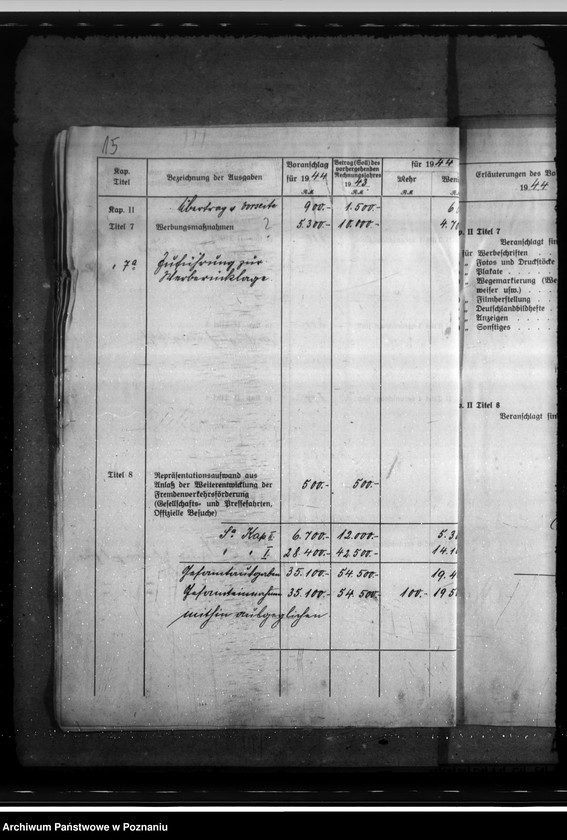 15
Kap. Titel | Bezeichnung der Ausgaben | Voranschlag für 1944 RM | Betrag (Soll) des vorhergehenden Rechnungsjahres 1943 RM | für 1944 Mehr RM | Wen
Übertrag v. vorseite 900.- 1.500.- 6
Kap. II
Titel 7 Werbungsmaßnahmen ? 5.300.- 10.000.- 4.70
" 7a Zuführung zur
Werberücklage
Titel 8 Repräsentationsaufwand aus
Anlaß der Weiterentwicklung der 500.- 500.-
Fremdenverkehrsförderung
(Gesellschafts- und Pressefahrten,
Offizielle Besuche)
Sa Kap II 6.700.- 12.000.- 5.3
" " I 28 400.- 42 500.- 14.1
Gesamtausgaben 35.100.- 54.500.- 19.4
Gesamteinnahmen 35.100.- 54 500.- 100.- 19 5
mithin ausgeglichen
Erläuterungen des Vo
1944
p. II Titel 7
Veranschlagt sin
für Werbeschriften . .
" Fotos und Druckstöcke
" Plakate . . .
" Wegemarkierung (We
weiser usw.) . .
" Filmherstellung .
" Deutschlandbildhefte .
" Anzeigen . . .
" Sonstiges . . .
p. II Titel 8
Veranschlagt sin
Archiwum Państwowe w Poznaniu